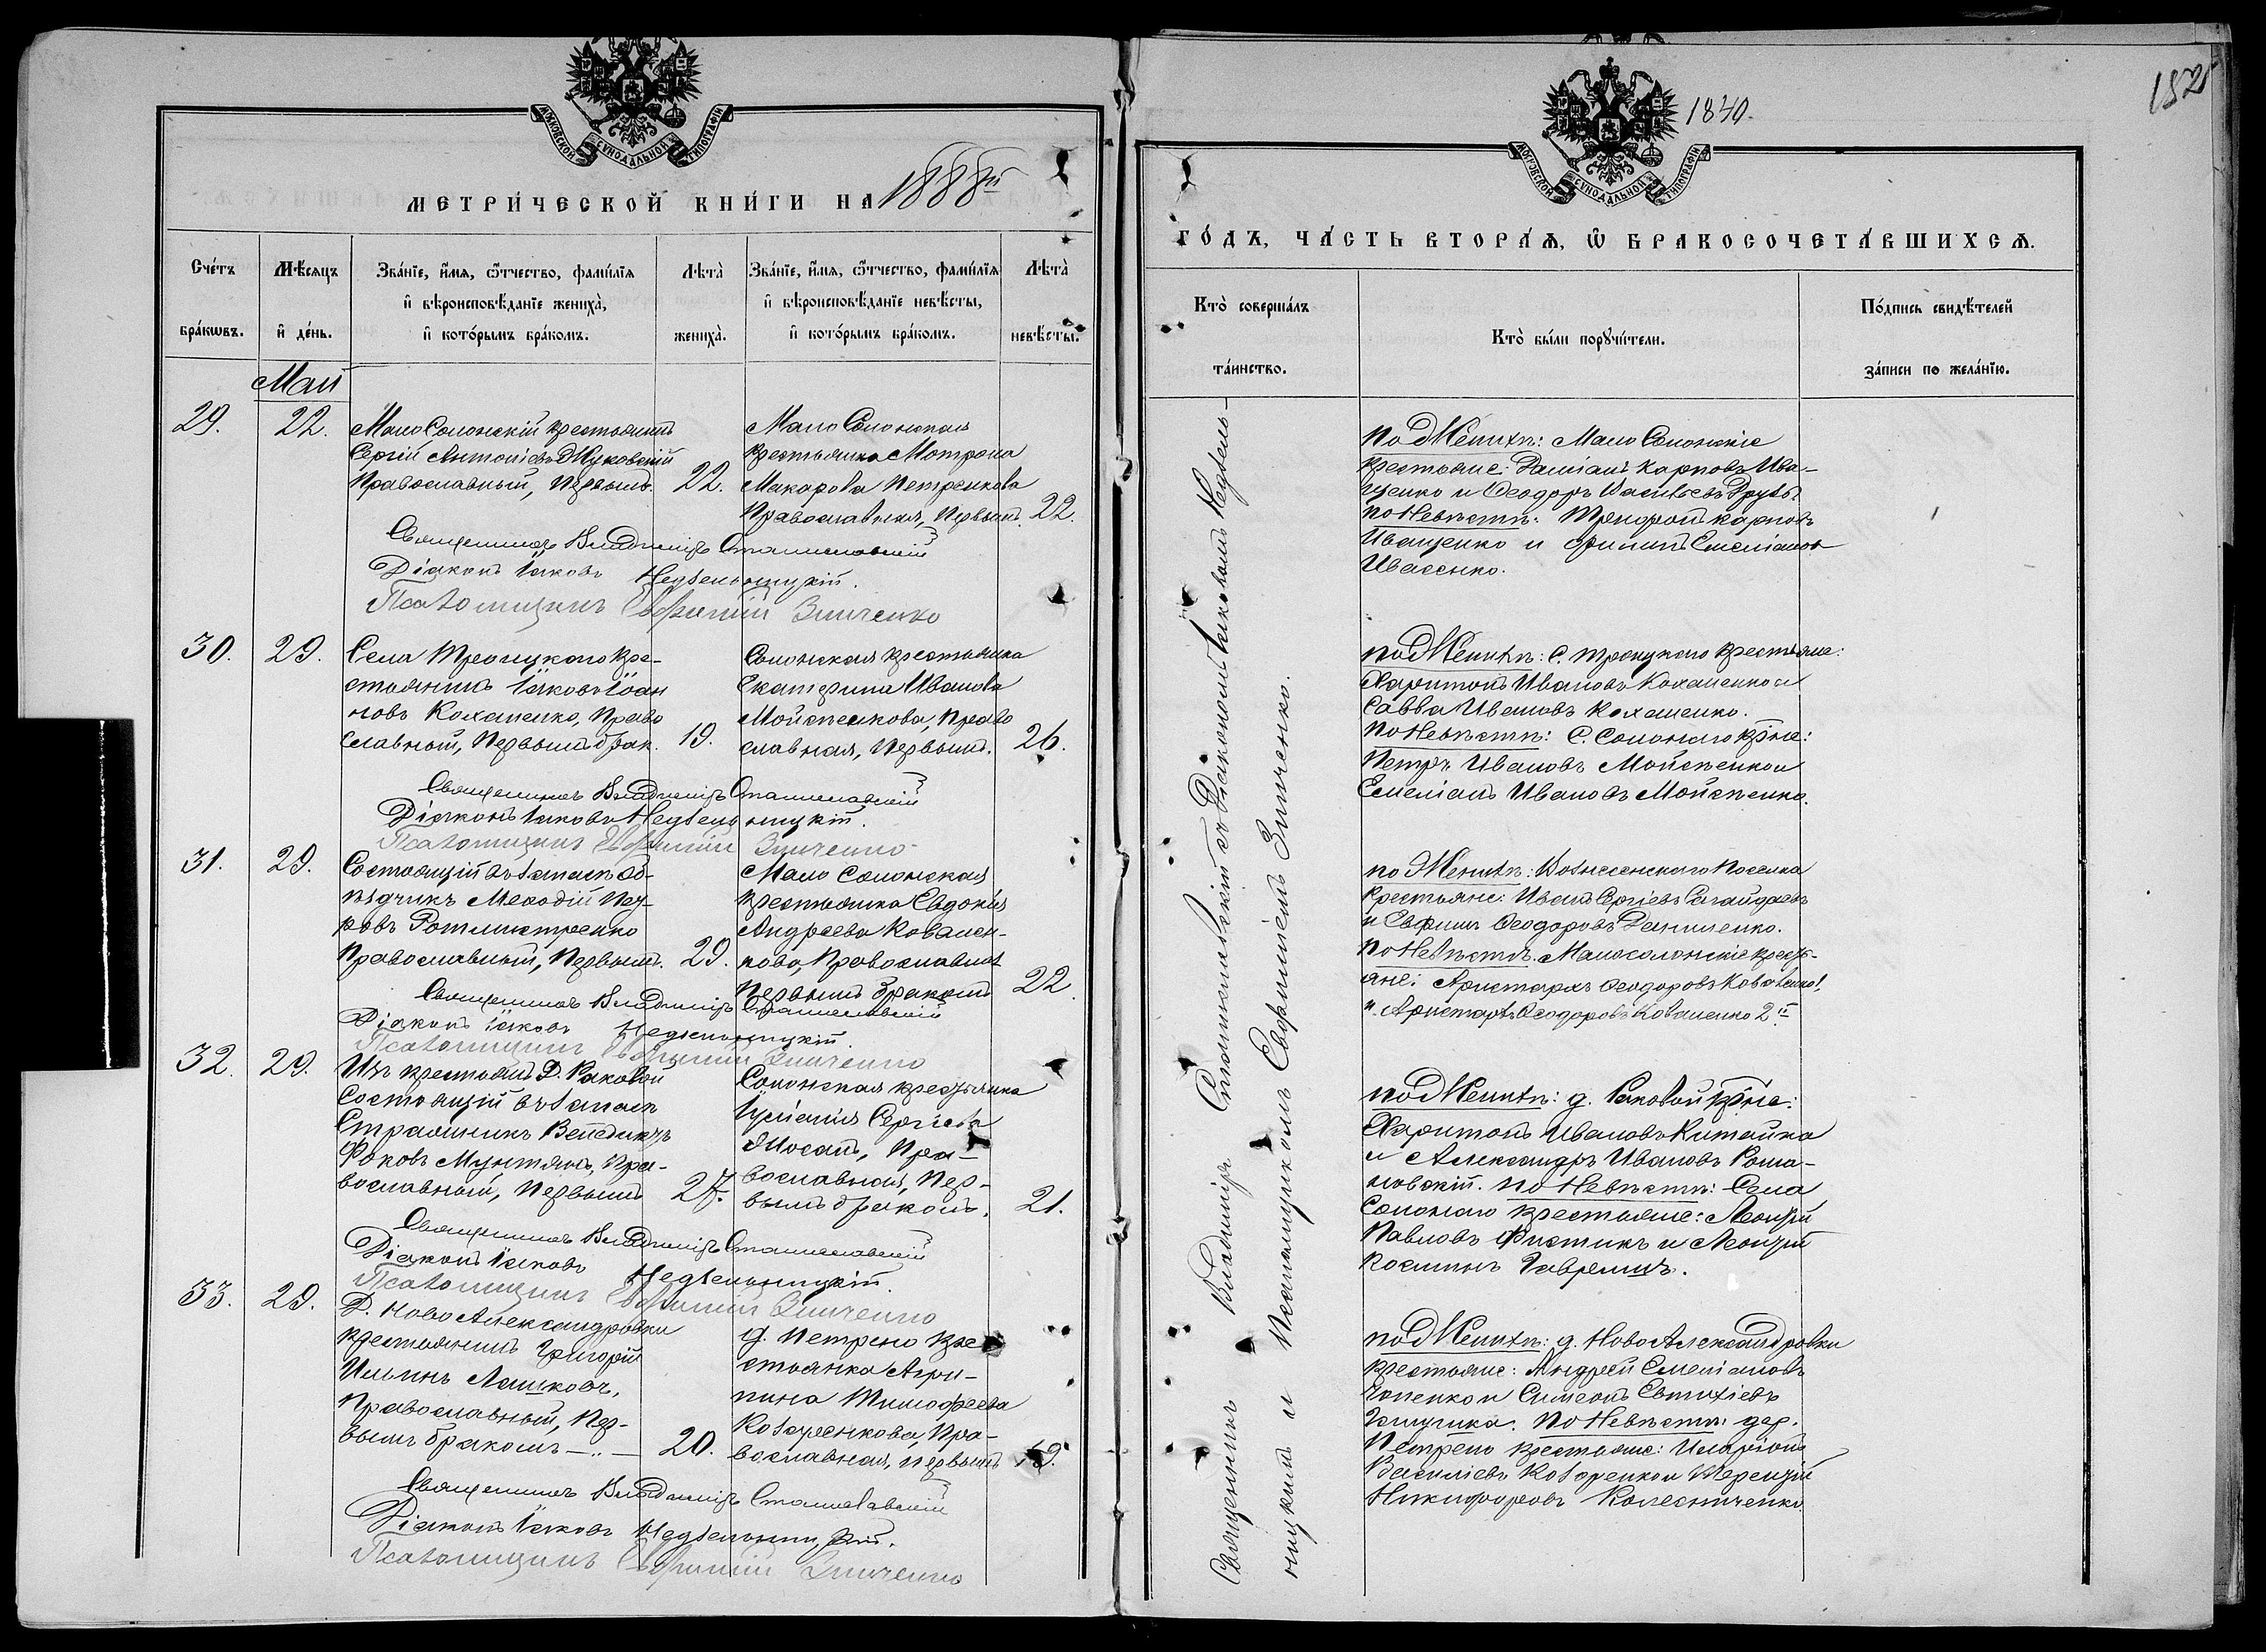 МОСКОВСКОЙ СѴНОДАЛЬНОЙ ТИПОГРАФІИ
МЕТРИ́ЧЕСКОЙ КНИ́ГИ НА 1888й
Сче́тъ бра́ковъ.
Мѣ́сяцъ и҆ де́нь.
Зва́нїе, и҆́мѧ, ѻ҆́тчество, фами́лїѧ
и҆ вѣроисповѣ́данїе жениха̀,
и҆ кото́рымъ бра́комъ.
Лѣта̀ жениха̀.
Зва́нїе, и҆́мѧ, ѻ҆́тчество, фами́лїѧ
и҆ вѣроисповѣ́данїе невѣ́сты,
и҆ кото́рымъ бра́комъ.
Лѣта̀ невѣ́сты.
Май
29.
22.
Мало Солонскій крестьянинъ
Сергій Антоніевъ Жуковскій
Православный, Первымъ.
22.
Мало Солонская
крестьянка Мотрона
Макарова Петренкова
Православная, Первым.
22.
Священникъ Владиміръ Станиславскій
Діаконъ Іаковъ Недзельницкій.
Псаломщикъ Евфимій Зинченко
30.
29.
Села Троицкаго кре-
стьянинъ Іаковъ Іоан
новъ Коханенко, Право
славный, Первымъ брак.
19.
Солонская крестьянка
Екатерина Иванова
Мойсѣенкова, Право
славная, Первым.
26.
Священникъ Владиміръ Станиславскій
Діаконъ Іаковъ Недзельницкій.
Псаломщикъ Евфимій Зинченко
31.
29.
Состоящій въ запасѣ Об-
ѣздчикъ Меѳодій Пет-
ровъ Ротмистренко
Православный, Первымъ.
29.
Мало Солонская
крестьянка Евдокія
Андреева Ковален-
кова, Православная
Первымъ бракомъ
22
Священникъ Владиміръ Станиславскій
Діаконъ Іаковъ Недзельницкій.
Псаломщикъ Евфимій Зинченко
32.
29.
Изъ крестьянъ Д. Раковой
Состоящій въ запасѣ
Стражникъ Венедиктъ
Фоковъ Мунтянъ, Пра-
вославный, Первымъ
27.
Солонская крестьянка
Іуліанія Сергіева
Мосанъ, Пра-
вославная, Пер-
вымъ бракомъ.
21.
Священникъ Владиміръ Станиславскій
Діаконъ Іаковъ Недзельницкій.
Псаломщикъ Евфимій Зинченко
33.
29.
Д. НовоАлександровки
крестьянинъ Григорій
Ильинъ Лашковъ,
Православный, Пер-
вымъ бракомъ
20.
д. Петрено кре
стьянка Агри-
пина Тимофеева
Козаренкова, Пра-
вославная, первымъ
19.
Священникъ Владиміръ Станиславскій
Діаконъ Іаковъ Недзельницкій.
Псаломщикъ Евфимій Зинченко
1840.
152
МОСКОВСКОЙ СѴНОДАЛЬНОЙ ТИПОГРАФІИ
ГО́ДЪ, ЧА́СТЬ ВТОРА́Ѧ, Ѽ БРАКОСОЧЕТА́ВШИХСѦ.
Кто̀ соверша́лъ
та́инство.
Кто̀ бы́ли порꙋчи́тели.
По́дпись свидѣ́телей
за́писи по жела́нїю.
Священникъ Владиміръ Станиславскій съ Діакономъ Іаковомъ Недзель-
ницкимъ и Псаломщикомъ Евфиміемъ Зинченко.
По Женихѣ: Мало Солонскіе
крестьяне: Даміанъ Карповъ Ива-
щенко и Ѳеодоръ Васильевъ Друзь.
по Невѣстѣ: Трифонъ Карповъ
Иващенко и Филипъ Емеліановъ
Ивасенко.
по Женихѣ: С. Троицкаго крестьяне:
Харитонъ Ивановъ Коханенко и
Савва Ивановъ Коханенко.
По Невѣстѣ: С. Солонаго кр-не:
Петръ Ивановъ Мойсѣенко и
Емеліанъ Ивановъ Мойсѣенко.
по Женихѣ: Вознесенскаго Поселка
крестьяне: Иванъ Сергіевъ Сагайдакъ
и Евфимъ Ѳеодоровъ Данименко.
По Невѣстѣ. Малосолонскіе кресть-
яне: Аристархъ Ѳеодоровъ Коваленко 1,
и Аристархъ Ѳеодоровъ Коваленко 2й
по Женихѣ: д. Раковой кр-не:
Харитонъ Ивановъ Китайка
и Александръ Ивановъ Рома-
новскій. по Невѣстѣ: Села
Солонаго крестьяне: Леонтій
Павловъ Фистикъ и Леонтій
Косминъ Гаврешъ.
по Женихѣ: д. НовоАлександровки
крестьяне: Андрей Емеліановъ
и Симеонъ Евтихіевъ
по Невѣстѣ: дер.
Петрено крестьяне: Иларіонъ
Василіевъ Козаренко и Терентій
Никифоровъ Колесниченко.